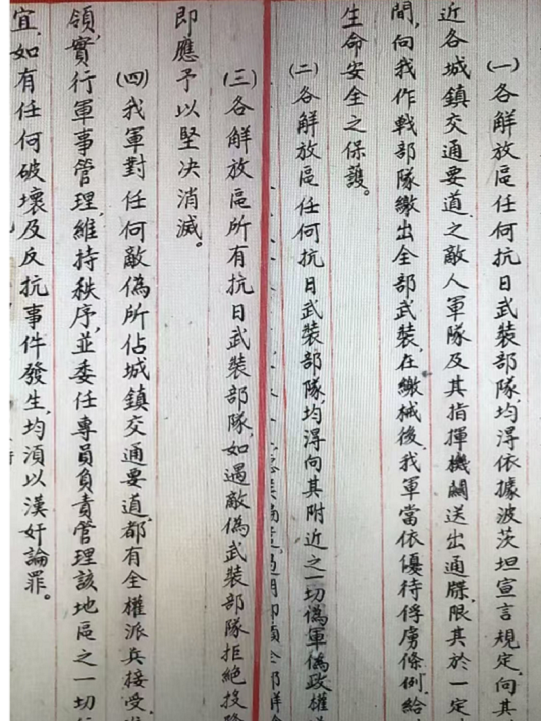 (一)各解放區任何抗日武裝部隊,均得依據波茨坦宣言規定,向其
近各城鎮交通要道之敵人軍隊及其指揮機關送出通牒,限其於一定
間,向我作戰部隊繳出全部武裝,在繳械後,我軍當依優待俘虜條例給
生命安全之保護。
(二)各解放區任何抗日武裝部隊,均得向其附近之一切偽軍偽政權
(三)各解放區所有抗日武裝部隊,如遇敵偽武裝部隊拒絕投
即應予以堅決消滅。
(四)我軍對任何敵偽所佔城鎮交通要道,都有全權派兵接受,
領,實行軍事管理,維持秩序,並委任專員負責管理該地區之一切
宜,如有任何破壞及反抗事件發生,均須以漢奸論罪。